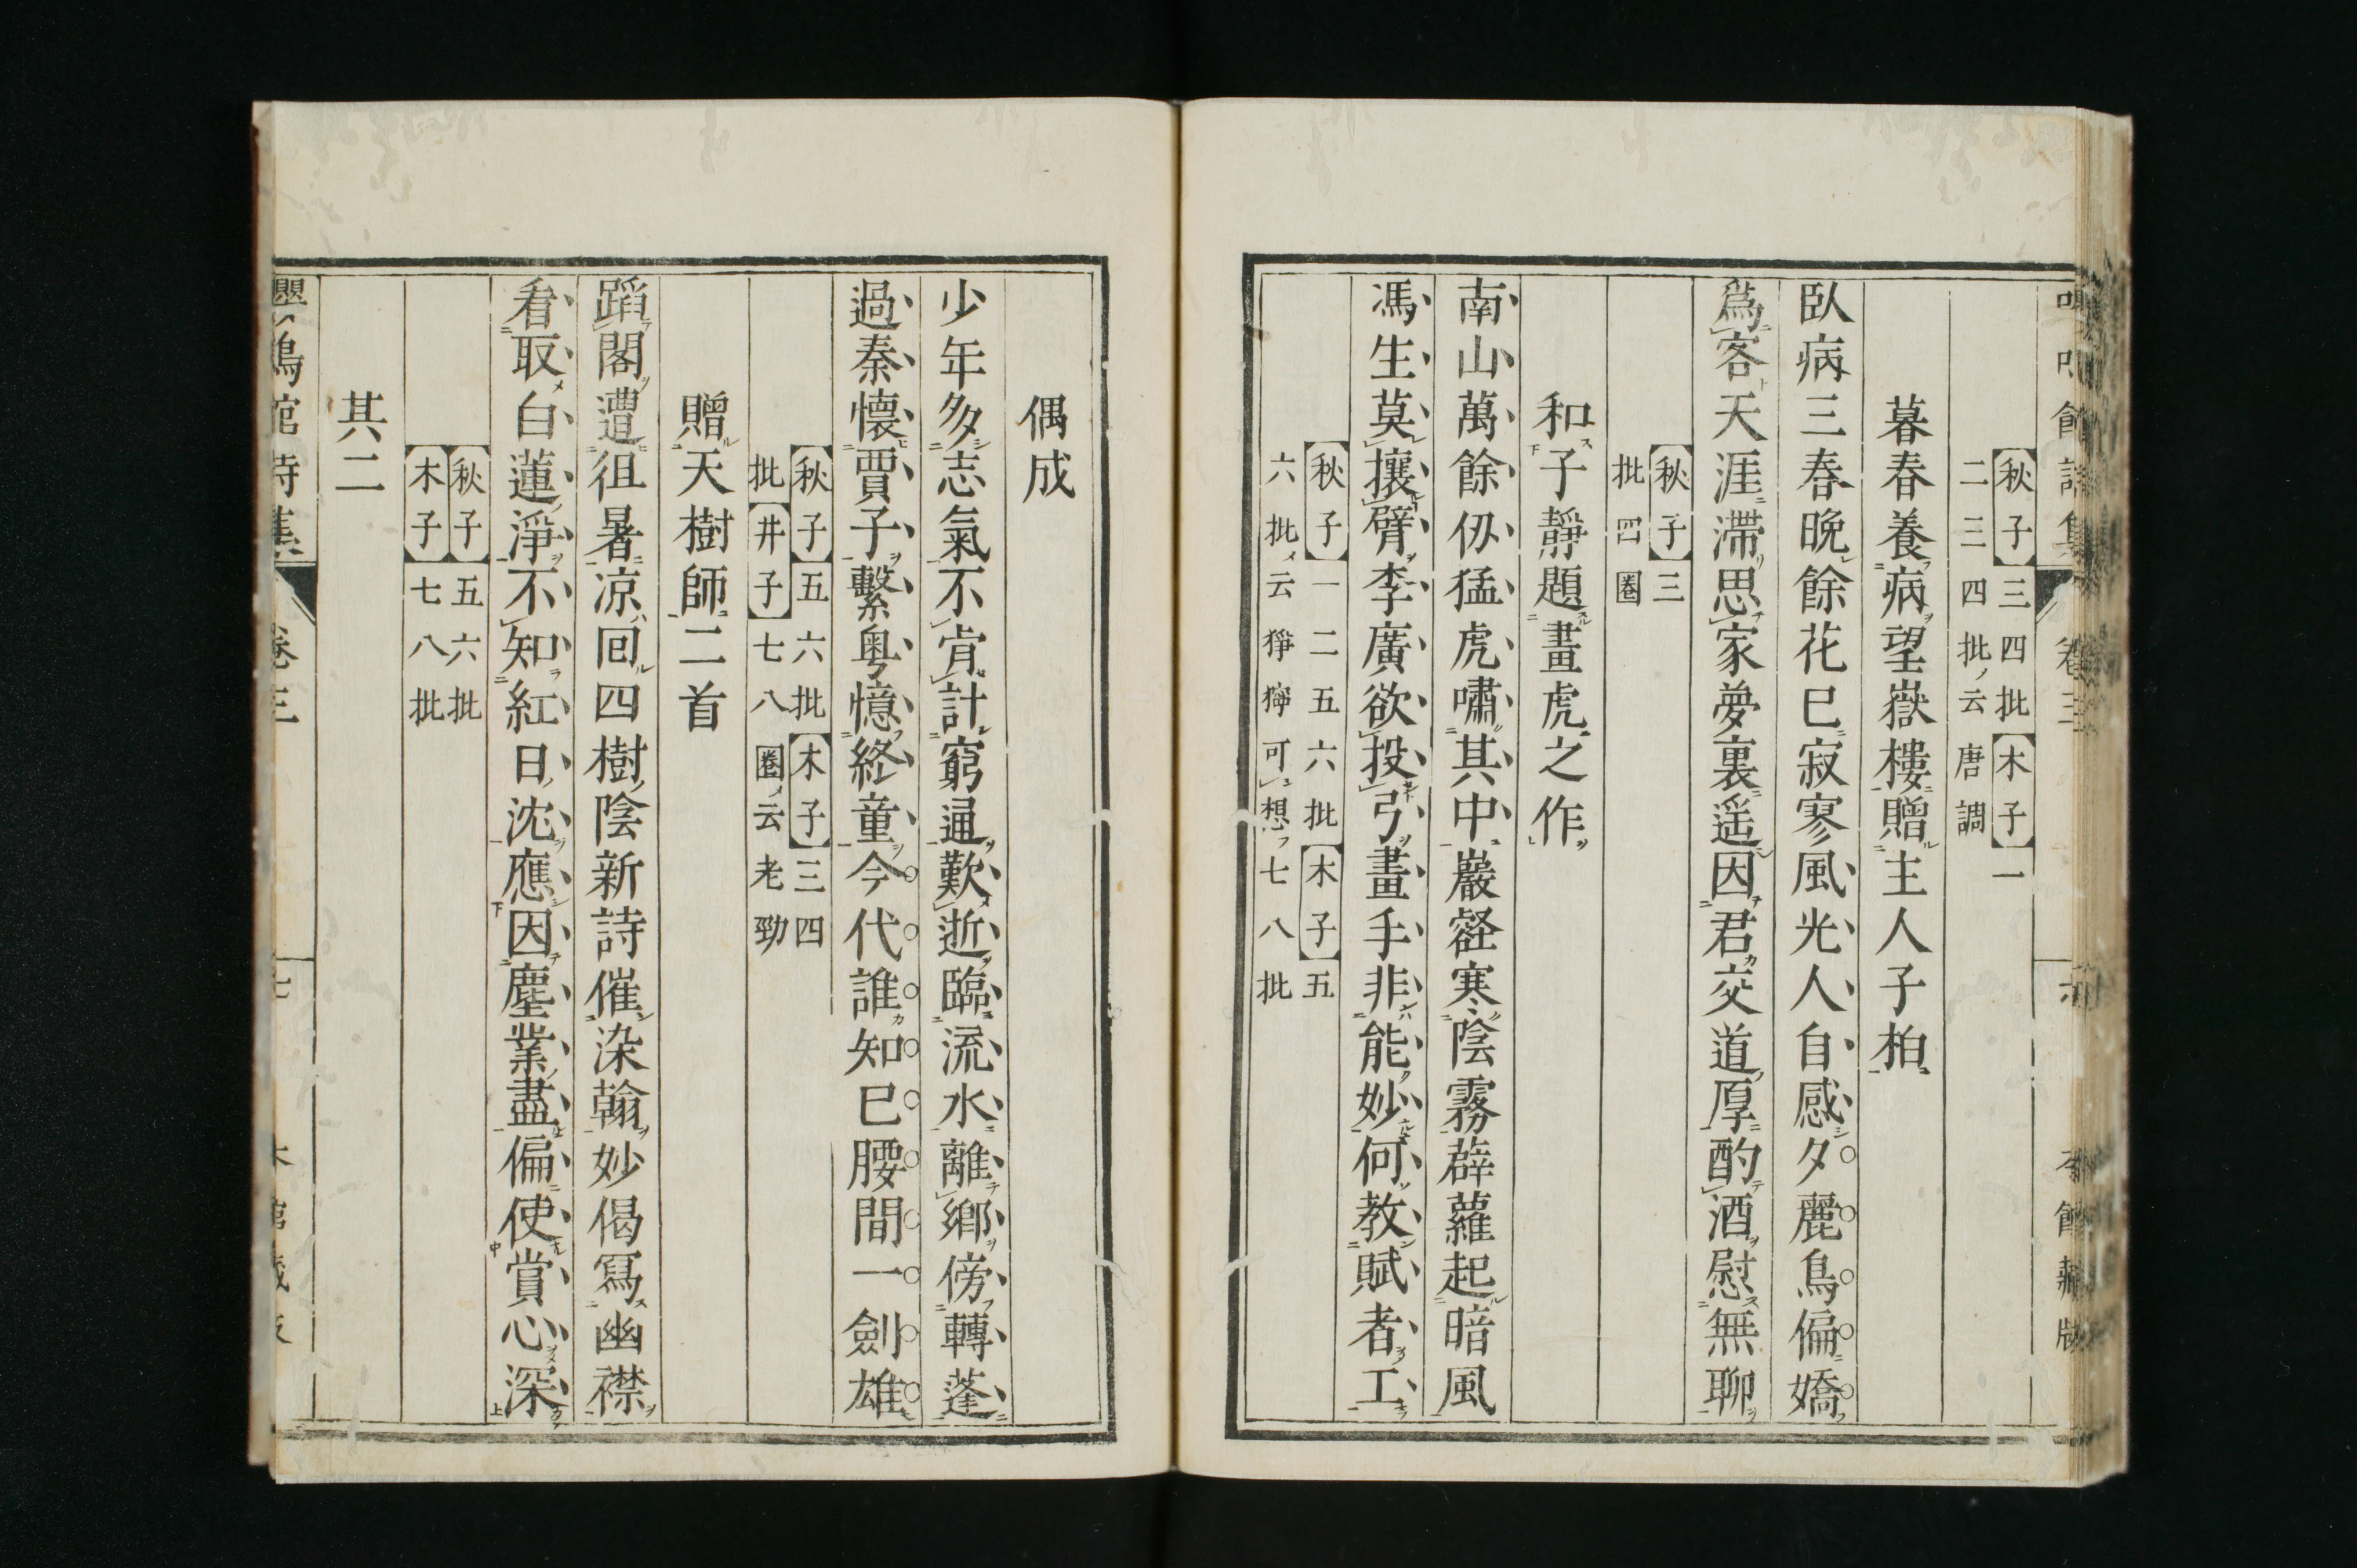 【秋子】三四批【木子】一
二三四批ノ云唐調
暮春養病望嶽樓贈主人子柏
臥病三春晩餘花已寂寥風光人自感夕麗鳥偏嬌
爲客天涯滞思家夢裏遥因君交道厚酌酒慰無聊
【秋子】三
批四圏
和子靜題畫虎之作
南山萬餘仭猛虎嘯其中巖壑寒陰霧薜蘿起暗風
馮生莫攘臂李廣欲投弓畫手非能妙何教賦者工
【秋子】一二五六批【木子】五
六批メ云猙獰可想フ七八批
偶成
少年多志氣不肯計窮通歎逝臨流水離鄉傍轉蓬
過秦懷賈子繫粤憶終童今代誰知已腰間一劍雄
【秋子】五六批【木子】三四
批【井子】七八圏メ云老勁
贈天樹師二首
蹈閣遭徂暑凉回四樹陰新詩催染翰妙偈寫幽襟
看取白蓮淨不知紅日沈應因塵業盡偏使賞心深
【秋子】五六批
【木子】七八批
其二
館詩集 卷三 七